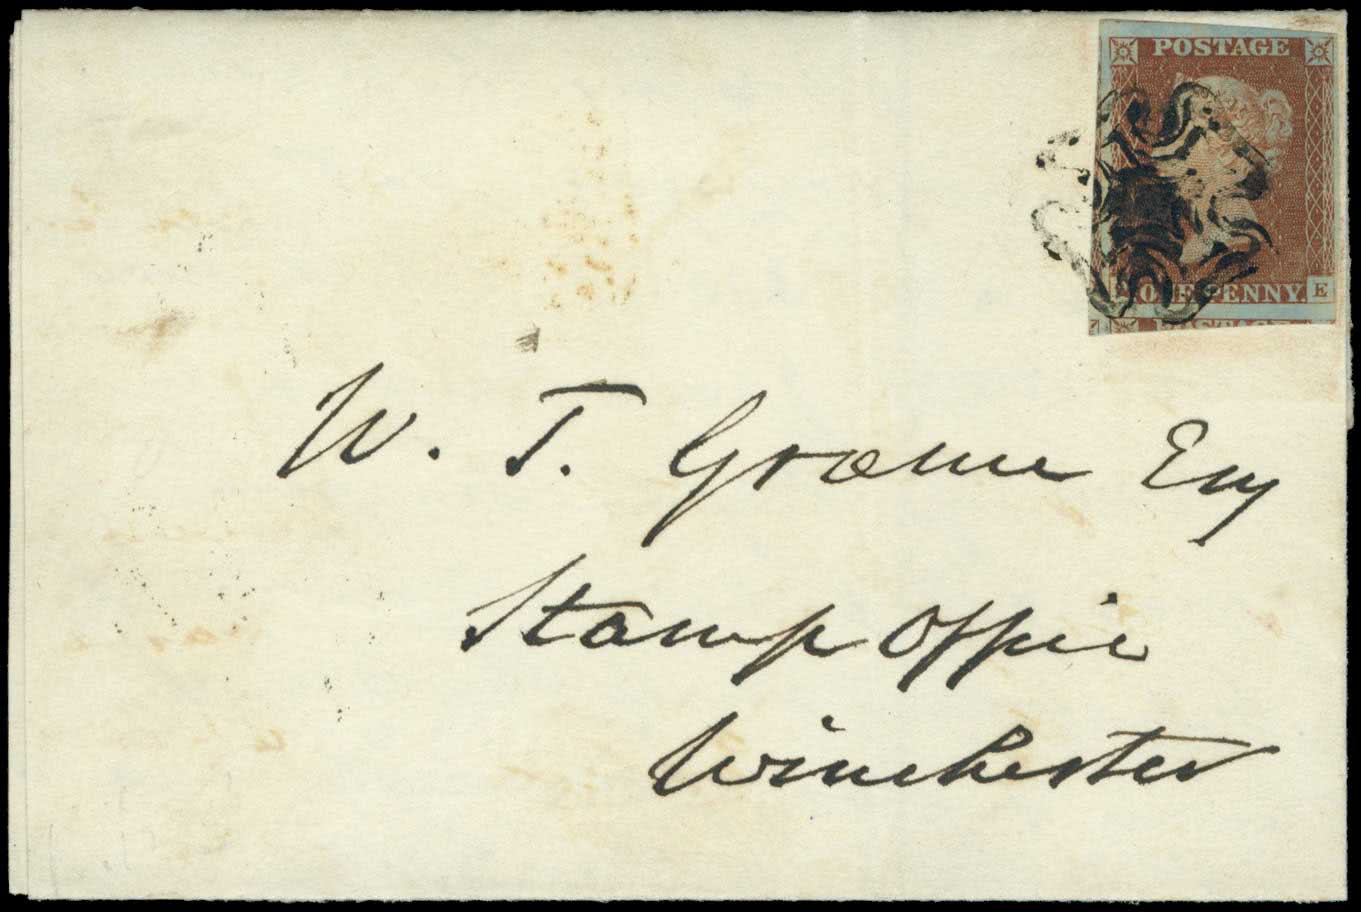 POSTAGE
ONE PENNY. E
W. T. Graeme Esq
Stamp Office
Winchester